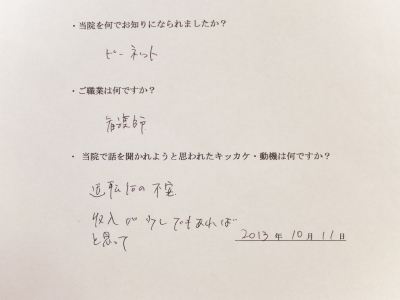 ・当院を何でお知りになられましたか？
ピーネット
・ご職業は何ですか？
看護師
・当院で話を聞かれようと思われたキッカケ・動機は何ですか？
運転 の不安
収入が少しでもあれば
と思って
2013年10月11日